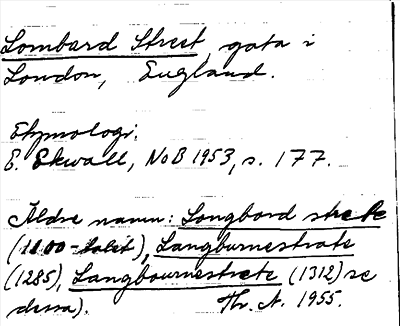 Lombard Street, gata i
London, England.
Etymologi:
E. Ekwall, NoB 1953, s. 177.
Äldre namn: Longbord strete
(1100-talet), Langburnestrate
(1285), Langbournestrete (1312) se
dessa). Th. A. 1955.